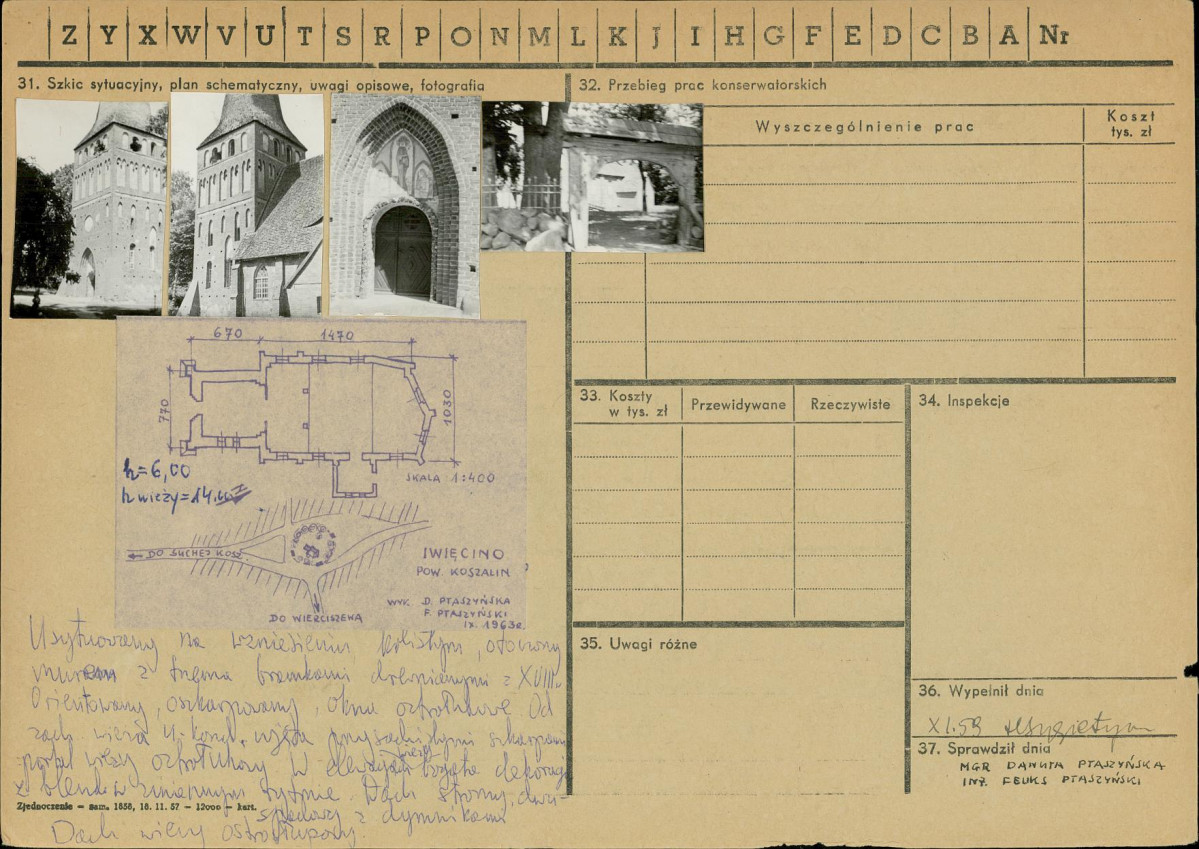 Z Y X W V U T S R P O N M L K J I H G F E D C B A Nr
31. Szkic sytuacyjny, plan schematyczny, uwagi opisowe, fotografia
670 1470
770
1030
h=6,00
h wieży=14.00
SKALA 1:400
DO SUCHEJ KOSZ.
IWIĘCINO
POW. KOSZALIN
DO WIERCISZEWA
WYK. D. PTASZYŃSKA
F. PTASZYŃSKI
IX. 1963r.
Usytuowany na wzniesieniu kolistym, otoczony
murem z trzema bramkami drewnianymi z XVIII w.
Orientowany, oszkarpowany, okna ostrołukowe. Od
zach. wieża 4-kond., ujęta przysadzistymi szkarpami
portal wieży ostrołukowy. W elewacjach wieży bogata dekoracja
z blend w zmiennym rytmie. Dach stromy, dwu-
spadowy z dymnikami
Dach wieży ostrołupany.
Zjednoczenie — zam. 1858, 18. 11. 57 — 12000 — kart.
32. Przebieg prac konserwatorskich
Wyszczególnienie prac
Koszt
tys. zł
33. Koszty
w tys. zł
Przewidywane
Rzeczywiste
34. Inspekcje
35. Uwagi różne
36. Wypełnił dnia
XI.59
37. Sprawdził dnia
MGR DANUTA PTASZYŃSKA
INŻ. FELIKS PTASZYŃSKI